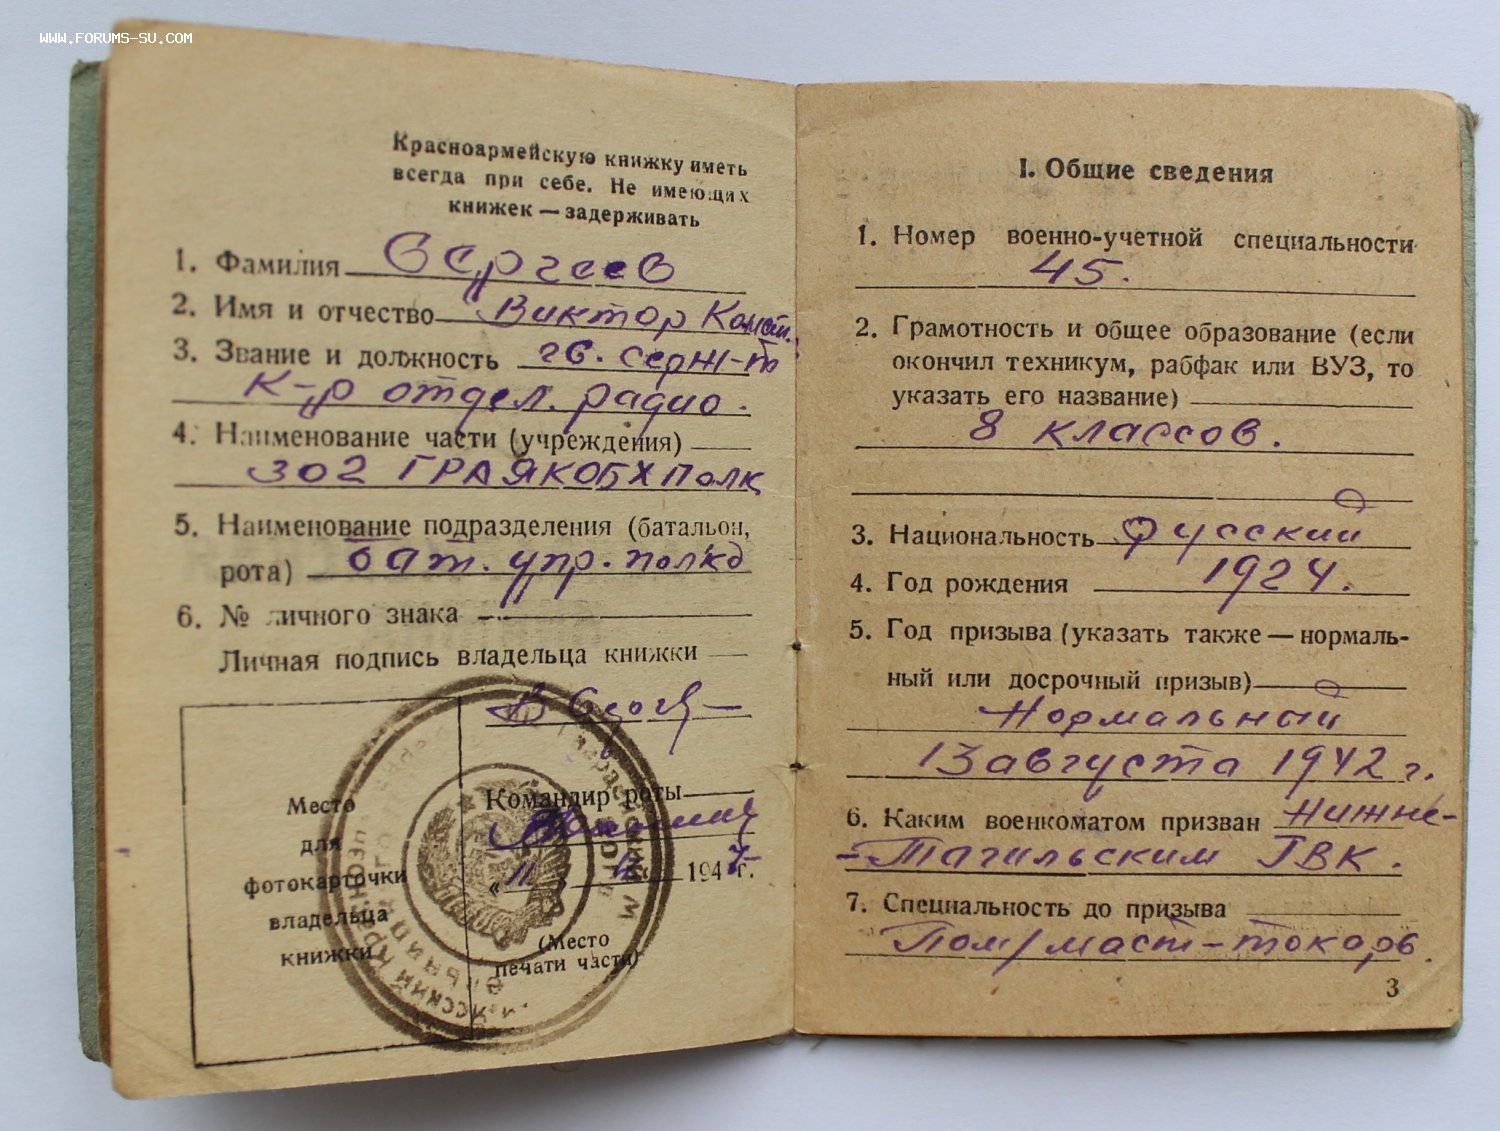 WWW.FORUMS-SU.COM
Красноармейскую книжку иметь
всегда при себе. Не имеющих
книжек — задерживать
1. Фамилия Сергеев
2. Имя и отчество Виктор Конст.
3. Звание и должность гв. серж-т
К-р отдел. радио.
4. Наименование части (учреждения)
302 ГРАЯКОБХ полк
5. Наименование подразделения (батальон,
рота) бат. упр. полка
6. № личного знака —
Личная подпись владельца книжки
Командир роты
« 11 » 1947 г.
Место
для
фотокарточки
владельца
книжки
(Место
печати части)
I. Общие сведения
1. Номер военно-учетной специальности
45.
2. Грамотность и общее образование (если
окончил техникум, рабфак или ВУЗ, то
указать его название)
8 классов.
3. Национальность Русский
4. Год рождения 1924.
5. Год призыва (указать также — нормаль-
ный или досрочный призыв)
Нормальный
13 августа 1942 г.
6. Каким военкоматом призван Нижне-
-Тагильским ГВК.
7. Специальность до призыва
Пом/маст-токарь.
3